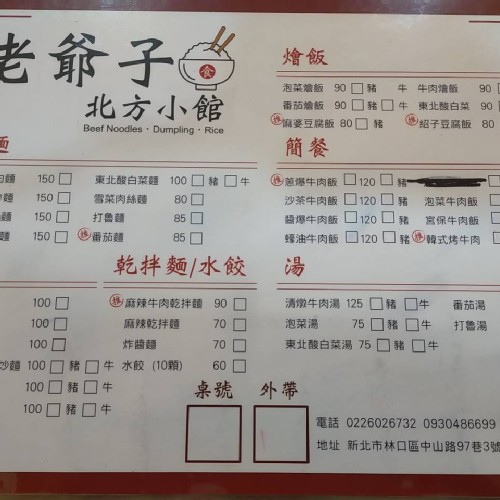 老爺子
食
北方小館
Beef Noodles · Dumpling · Rice
麵
肉麵 150 □ 東北酸白菜麵 100 □ 豬 □ 牛
麵 150 □ 雪菜肉絲麵 80 □
麵 150 □ 打魯麵 85 □
麵 150 □ 推 番茄麵 85 □
100 □
100 □
100 □
炒麵 100 □ 豬 □ 牛
100 □ 豬 □ 牛
100 □ 豬 □ 牛
乾拌麵/水餃
推 麻辣牛肉乾拌麵 90 □
麻辣乾拌麵 70 □
炸醬麵 70 □
水餃 (10顆) 60 □
燴飯
泡菜燴飯 90 □ 豬 牛 牛肉燴飯 90
番茄燴飯 90 □ 豬 □ 牛 東北酸白菜 90
推 麻婆豆腐飯 80 □ 推 紹子豆腐飯 80 □
簡餐
推 蔥爆牛肉飯 □ 120 □ 豬
沙茶牛肉飯 □ 120 □ 泡菜牛肉飯
醬爆牛肉飯 □ 120 □ 宮保牛肉飯
蠔油牛肉飯 □ 120 □ 豬 推 韓式烤牛肉
湯
清燉牛肉湯 125 □ 豬 □ 牛 番茄湯
泡菜湯 75 □ 豬 □ 牛 打魯湯
東北酸白菜湯 75 □ 豬 □ 牛
桌號 外帶
電話 0226026732 0930486699
地址 新北市林口區中山路97巷3號